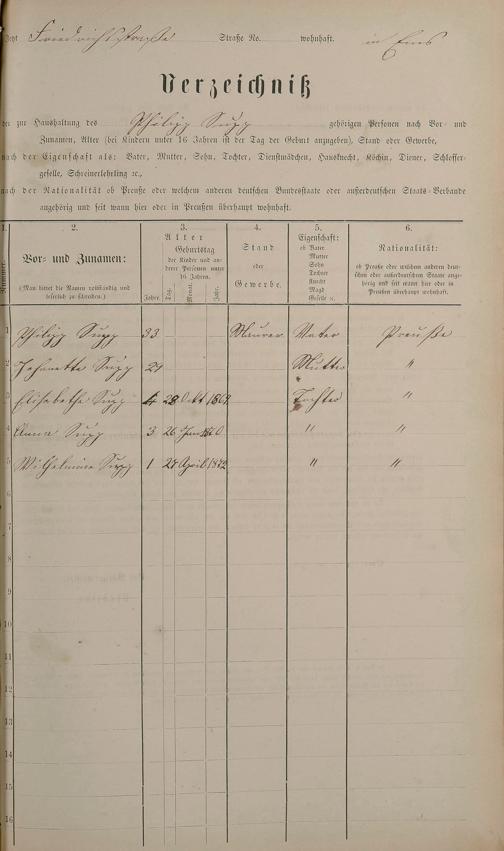 Jetzt Friedrichstraße Straße No. wohnhaft. in Ems
Verzeichniß
der zur Haushaltung des Philipp Supp gehörigen Personen nach Vor- und
Zunamen, Alter (bei Kindern unter 16 Jahren ist der Tag der Geburt anzugeben), Stand oder Gewerbe,
nach der Eigenschaft als: Vater, Mutter, Sohn, Tochter, Dienstmädchen, Hausknecht, Köchin, Diener, Schlosser-
geselle, Schreinerlehrling ꝛc.,
nach der Nationalität ob Preuße oder welchem anderen deutschen Bundesstaate oder außerdeutschen Staats-Verbande
angehörig und seit wann hier oder in Preußen überhaupt wohnhaft.
1. 2. 3. 4. 5. 6.
Nummer.
Vor- und Zunamen:
(Man bittet die Namen vollständig und
leserlich zu schreiben.)
Alter
Geburtstag
der Kinder und an-
derer Personen unter
16 Jahren.
Jahre. Tag. Monat. Jahr.
Stand
oder
Gewerbe.
Eigenschaft:
ob Vater
Mutter
Sohn
Tochter
Knecht
Magd
Geselle ꝛc.
Nationalität:
ob Preuße oder welchem anderen deut-
schen oder außerdeutschen Staate ange-
hörig und seit wann hier oder in
Preußen überhaupt wohnhaft.
1 Philipp Supp 33 Maurer Vater Preuße
2 Johanette Supp Mutter "
3 Elisabethe Supp 4 28 Okt 1869 Tochter "
4 Anna Supp 3 26 " "
5 Wilhelmine Supp 1 27 April 1872 " "
6
7
8
9
10
11
12
13
14
15
16